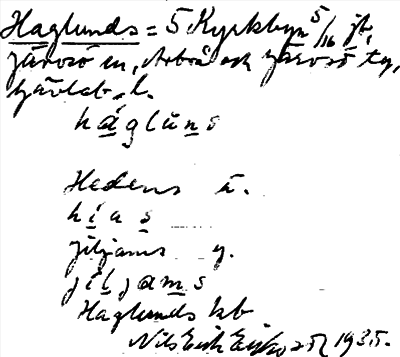 Haglunds = 5 Kyrkbyn 5/16 jb,
Järvsö sn, Arbrå och Järvsö tg,
Gävleb. l.
háglùns
Hedens ä.
hías
Jiljams y.
jíljams
Haglunds kb
Nils Erik 1935.